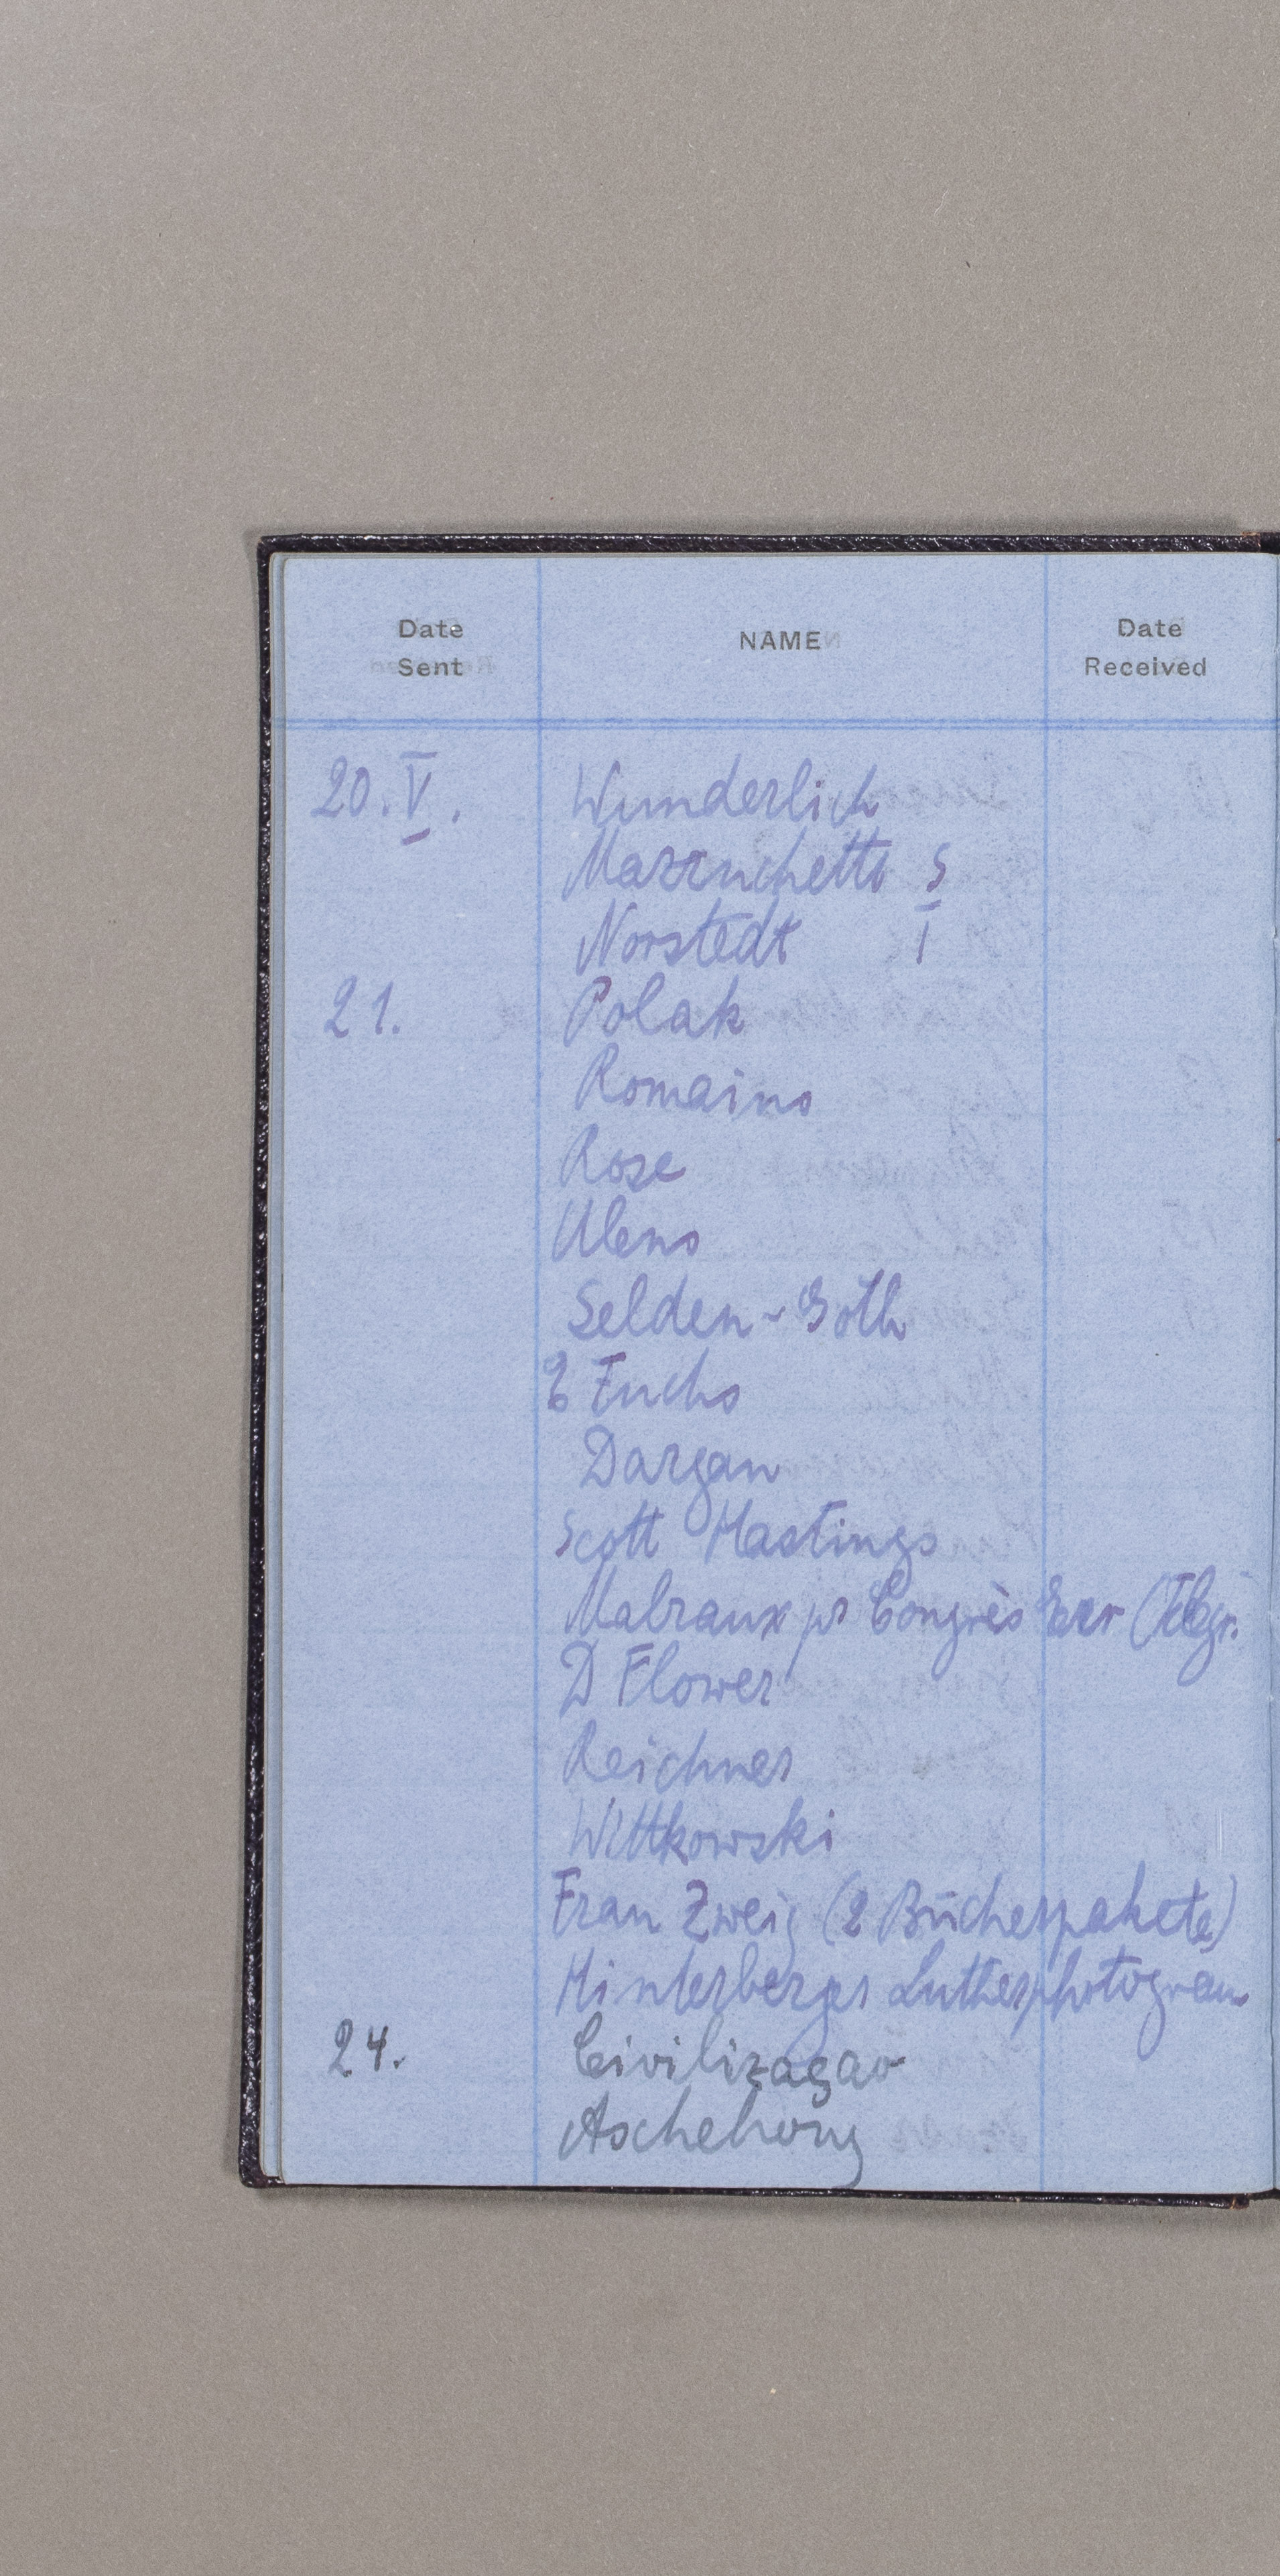 Date Sent NAME Date Received
20.V. Wunderlich
Mazzuchetti S
Norstedt I
21. Polak
Romains
Rose
Ulens
Selden-Goth
E Fuchs
Dargan
Scott Hastings
Malraux pr Congrès Ecr (Telegr.
D Flower
Reichner
Wittkowski
Frau Zweig (2 Bücherpakete)
Hinterberger Lutherphotogram
24. Civilizaçao
Aschehoug